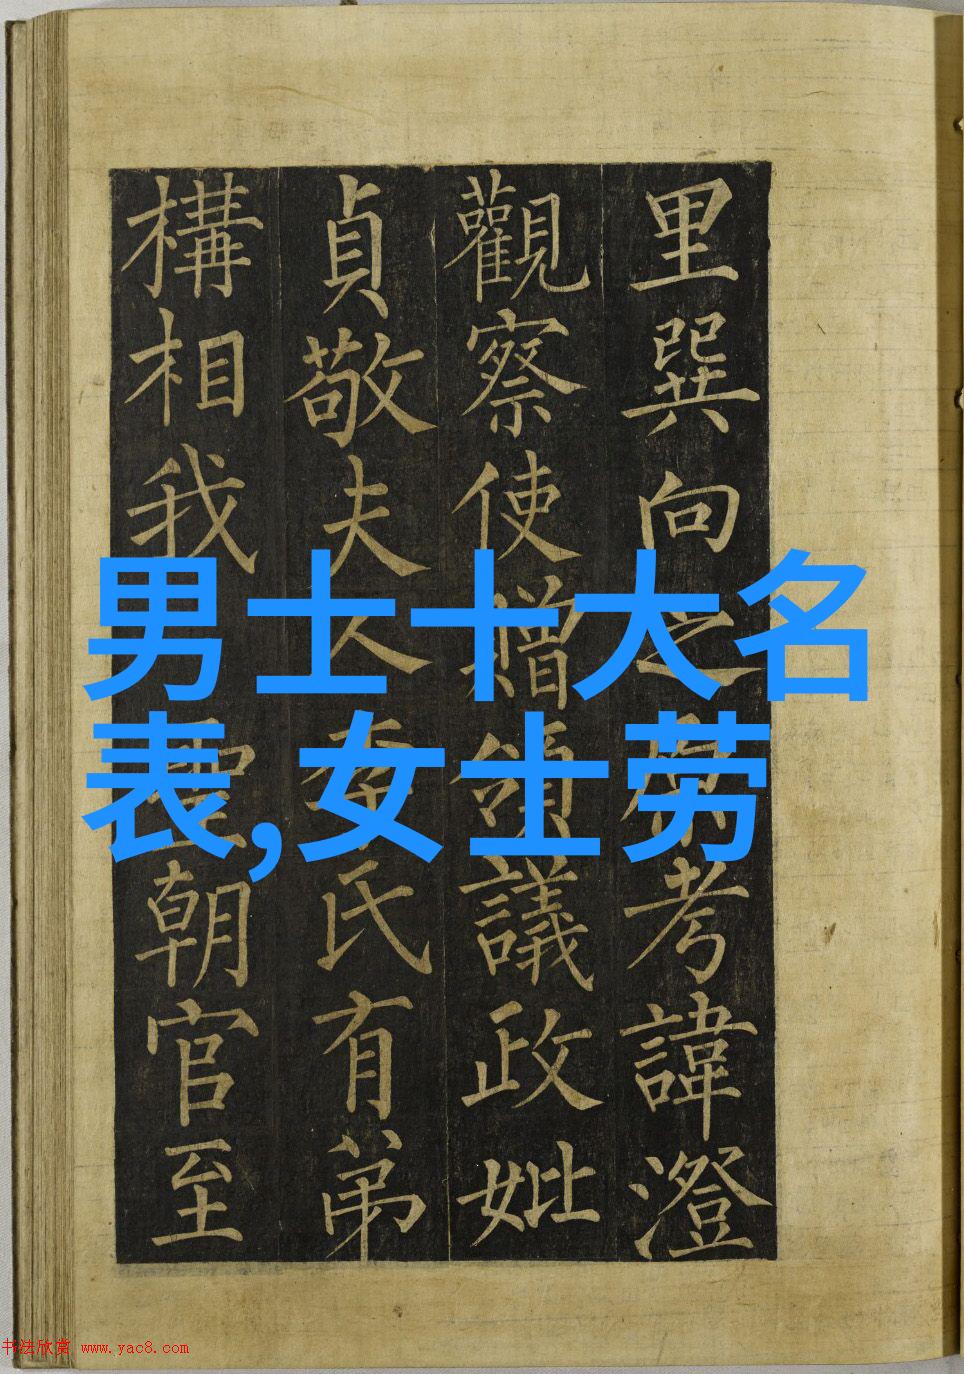 男士十大名
表,女士劳
里巽向之考諱澄
觀察使贈領議政妣
貞敬夫人李氏有弟
構相我聖朝官至
书法欣赏 www.yac8.com